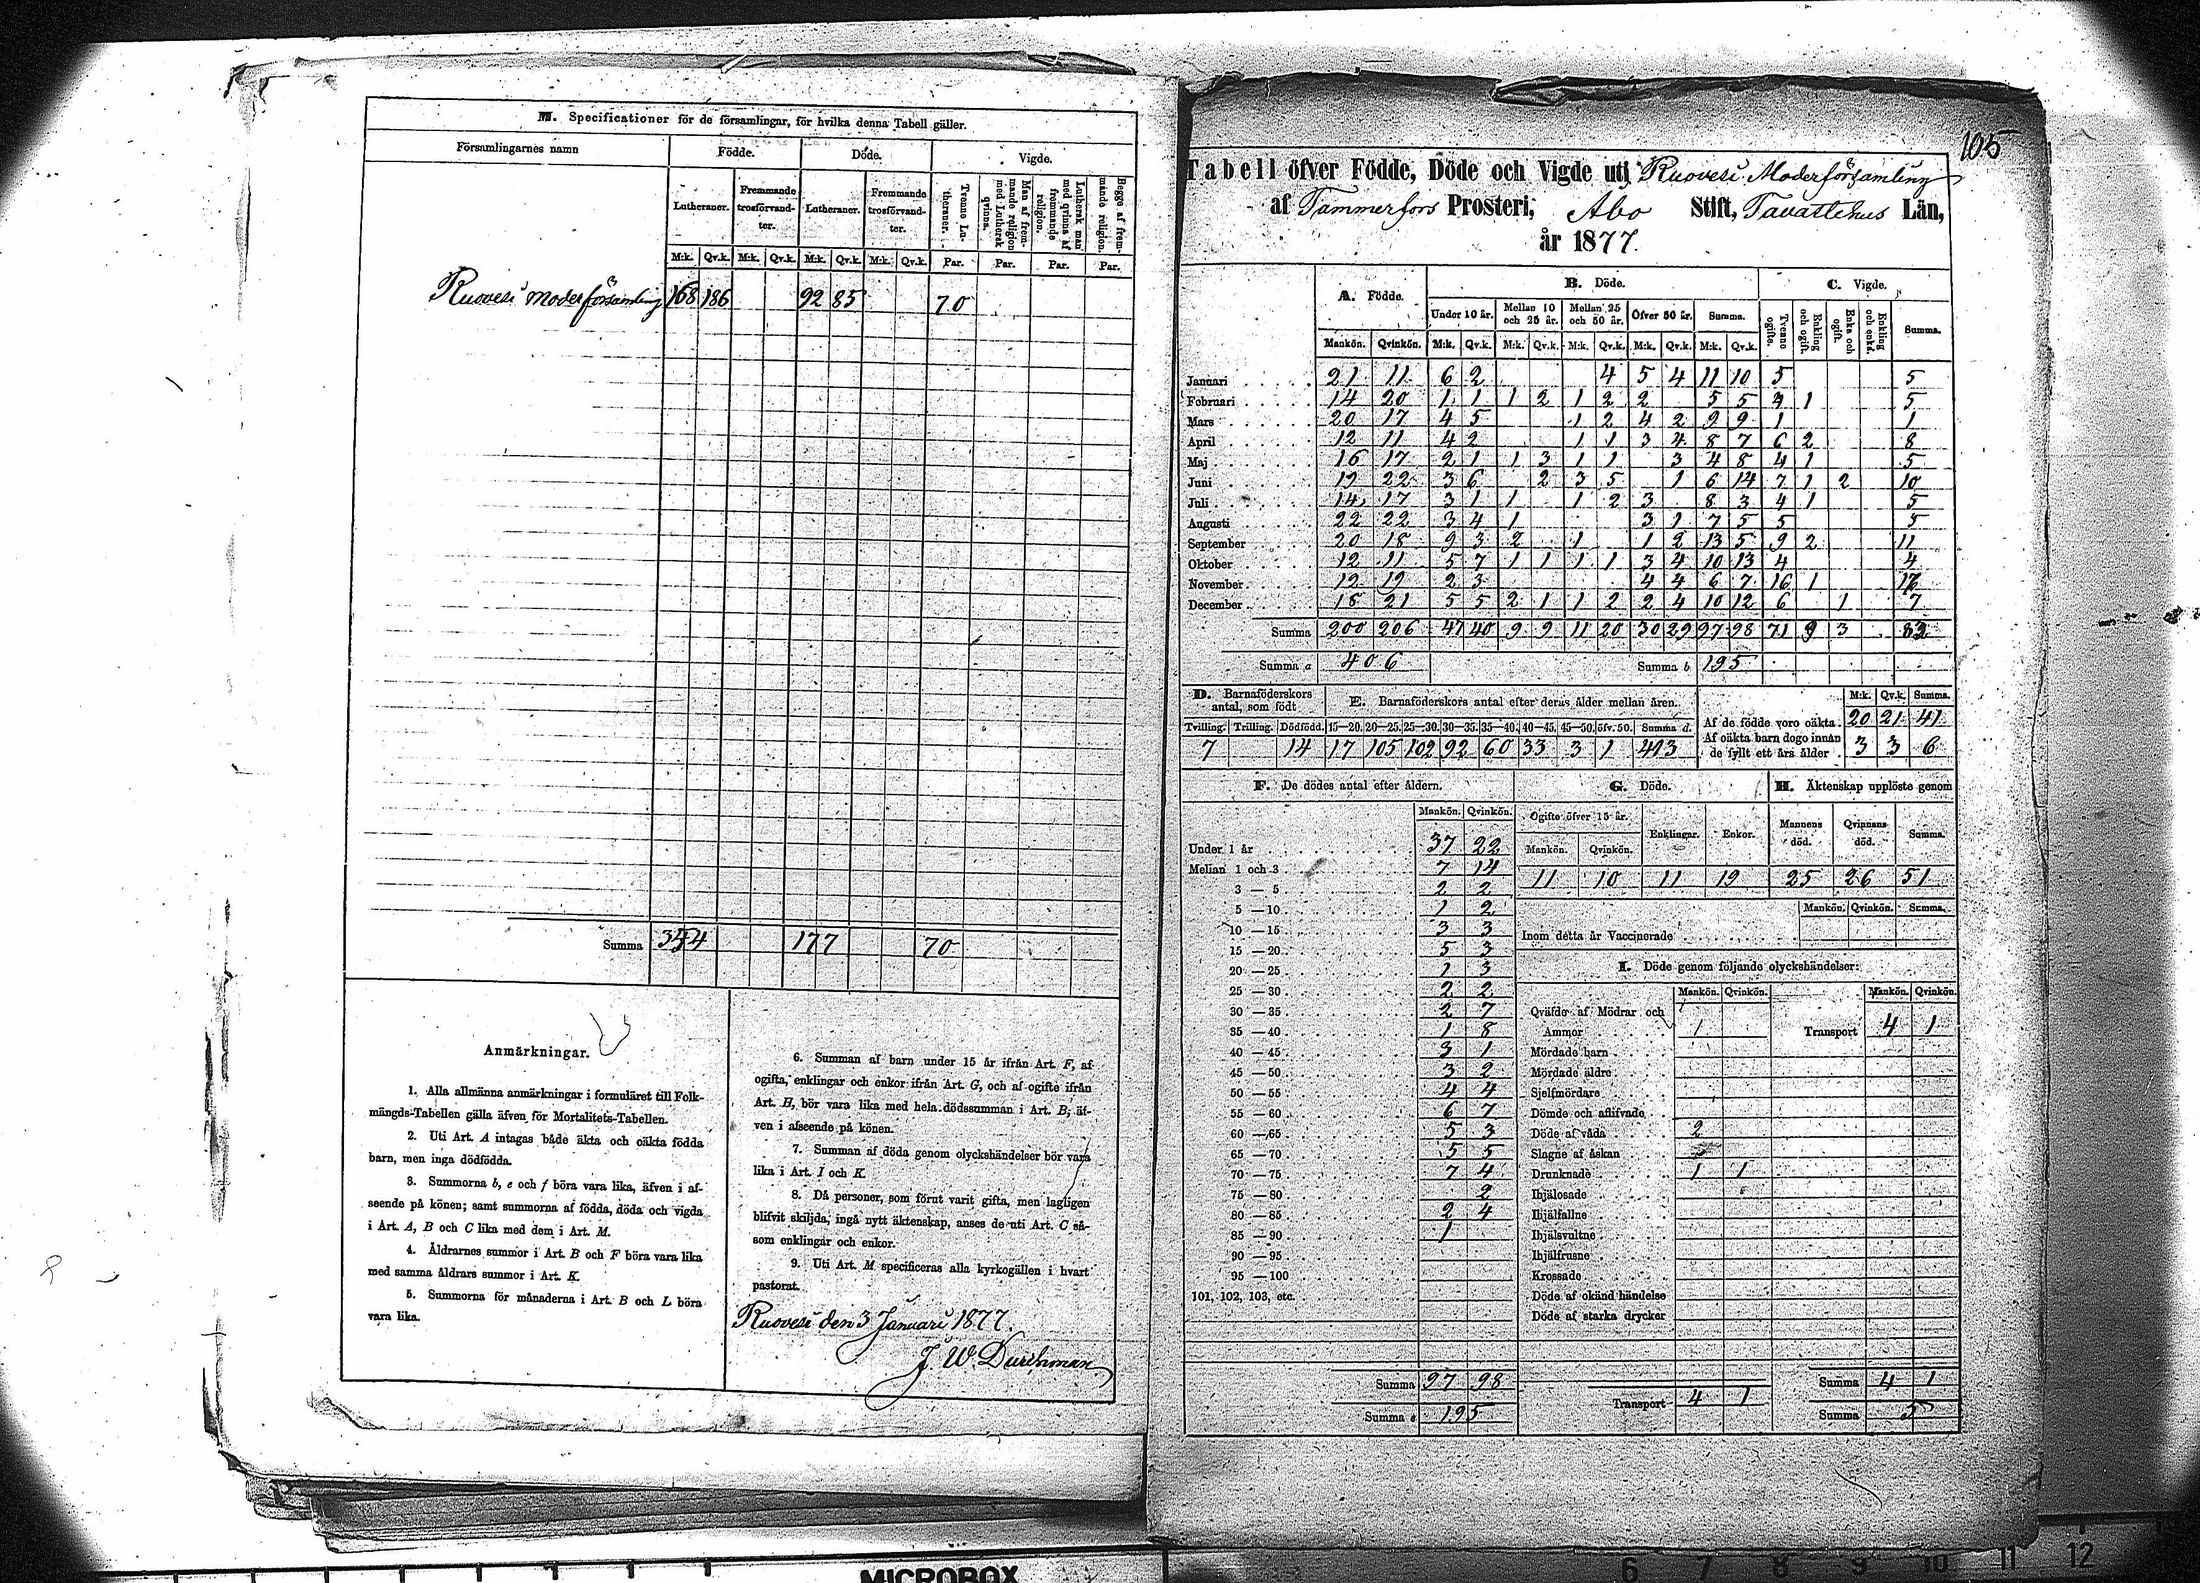 M. Specificationer för de församlingar, för hvilka denna Tabell gäller.
Församlingarnes namn Födde. Döde. Vigde.
Lutheraner. Fremmande trosförvandter. Lutheraner. Fremmande trosförvandter. Tvenne Lutheraner. Man af fremmande religion med Luthersk qvinna. Luthersk man med qvinna af fremmande religion. Begge af fremmande religion.
M:k. Qv.k. M:k. Qv.k. M:k. Qv.k. M:k. Qv.k. Par. Par. Par. Par.
Ruovesi moderförsamling 168 186 92 85 70
Summa 354 177 70
Anmärkningar.
1. Alla allmänna anmärkningar i formuläret till Folk-
mängds-Tabellen gälla äfven för Mortalitets-Tabellen.
2. Uti Art. A intagas både äkta och oäkta födda
barn, men inga dödfödda.
3. Summorna b, e och f böra vara lika, äfven i af-
seende på könen; samt summorna af födda, döda och vigda
i Art. A, B och C lika med dem i Art. M.
4. Åldrarnes summor i Art. B och F böra vara lika
med samma åldrars summor i Art. K.
5. Summorna för månaderna i Art. B och L böra
vara lika.
6. Summan af barn under 15 år ifrån Art. F, af
ogifta, enklingar och enkor ifrån Art. G, och af ogifte ifrån
Art. H, bör vara lika med hela dödssumman i Art. B, äf-
ven i afseende på könen.
7. Summan af döda genom olyckshändelser bör vara
lika i Art. I och K.
8. Då personer, som förut varit gifta, men lagligen
blifvit skiljda, ingå nytt äktenskap, anses de uti Art. C så-
som enklingar och enkor.
9. Uti Art. M specificeras alla kyrkogällen i hvart
pastorat.
Ruovesi den 3 Januari 1877.
J. W. Durchman
105
Tabell öfver Födde, Döde och Vigde uti Ruovesi Moderförsamling
af Tammerfors Prosteri, Åbo Stift, Tavastehus Län,
år 1877.
A. Födde. B. Döde. C. Vigde.
Under 10 år. Mellan 10 och 25 år. Mellan 25 och 50 år. Öfver 50 år. Summa. Tvenne ogifte. Enkling och ogift. Enka och ogift. Enkling och enka. Summa.
Mankön. Qvinkön. M:k. Qv.k. M:k. Qv.k. M:k. Qv.k. M:k. Qv.k. M:k. Qv.k.
Januari 21 11 6 2 4 5 4 11 10 5 5
Februari 14 20 1 1 1 2 1 2 2 5 5 4 1 5
Mars 20 17 4 5 1 2 4 2 9 9 1 1
April 12 11 4 2 1 1 3 4 8 7 6 2 8
Maj 16 17 2 1 1 3 1 1 3 4 8 4 1 5
Juni 19 22 3 6 2 3 5 1 6 14 7 1 2 10
Juli 14 17 3 1 1 1 2 3 8 3 4 1 5
Augusti 22 22 3 4 1 3 1 7 5 5 5
September 20 18 9 3 2 1 1 2 13 5 9 2 11
Oktober 12 11 5 7 1 1 1 1 3 4 10 13 4 4
November 12 19 2 3 4 4 6 7 16 1 17
December 18 21 5 5 2 1 1 2 2 4 10 12 6 1 7
Summa 200 206 47 40 9 9 11 20 30 29 97 98 71 9 3 83
Summa a 406 Summa b 195
D. Barnaföderskors antal, som födt E. Barnaföderskors antal efter deras ålder mellan åren. M:k. Qv.k. Summa.
Tvilling. Trilling. Dödfödd. 15—20. 20—25. 25—30. 30—35. 35—40. 40—45. 45—50. öfv. 50. Summa d.
7 14 17 105 102 92 60 33 3 1 413
Af de födde voro oäkta 20 21 41
Af oäkta barn dogo innan de fyllt ett års ålder 3 3 6
F. De dödes antal efter åldern. G. Döde. H. Äktenskap upplöste genom
Mankön. Qvinkön. Ogifte öfver 15 år. Enklingar. Enkor. Mannens död. Qvinnans död. Summa.
Mankön. Qvinkön.
11 10 11 19 25 26 51
Mankön. Qvinkön. Summa.
Inom detta år Vaccinerade
Under 1 år 37 22
Mellan 1 och 3 7 14
3 — 5 2 2
5 — 10 1 2
10 — 15 3 3
15 — 20 5 3
20 — 25 1 3
25 — 30 2 2
30 — 35 2 7
35 — 40 1 8
40 — 45 3 1
45 — 50 3 2
50 — 55 4 4
55 — 60 6 7
60 — 65 5 3
65 — 70 5 5
70 — 75 7 4
75 — 80 2
80 — 85 2 4
85 — 90 1
90 — 95
95 — 100
101, 102, 103, etc.
Summa 97 98
Summa e 195
I. Döde genom följande olyckshändelser:
Mankön. Qvinkön. Mankön. Qvinkön.
Qväfde af Mödrar och Ammor 1 Transport 4 1
Mördade barn
Mördade äldre
Sjelfmördare
Dömde och aflifvade
Döde af våda 2
Slagne af åskan
Drunknade 1 1
Ihjälosade
Ihjälfallne
Ihjälsvultne
Ihjälfrusne
Krossade
Döde af okänd händelse
Döde af starka drycker
Transport 4 1
Summa 4 1
Summa 5
MICROBOX
6 7 8 9 10 11 12